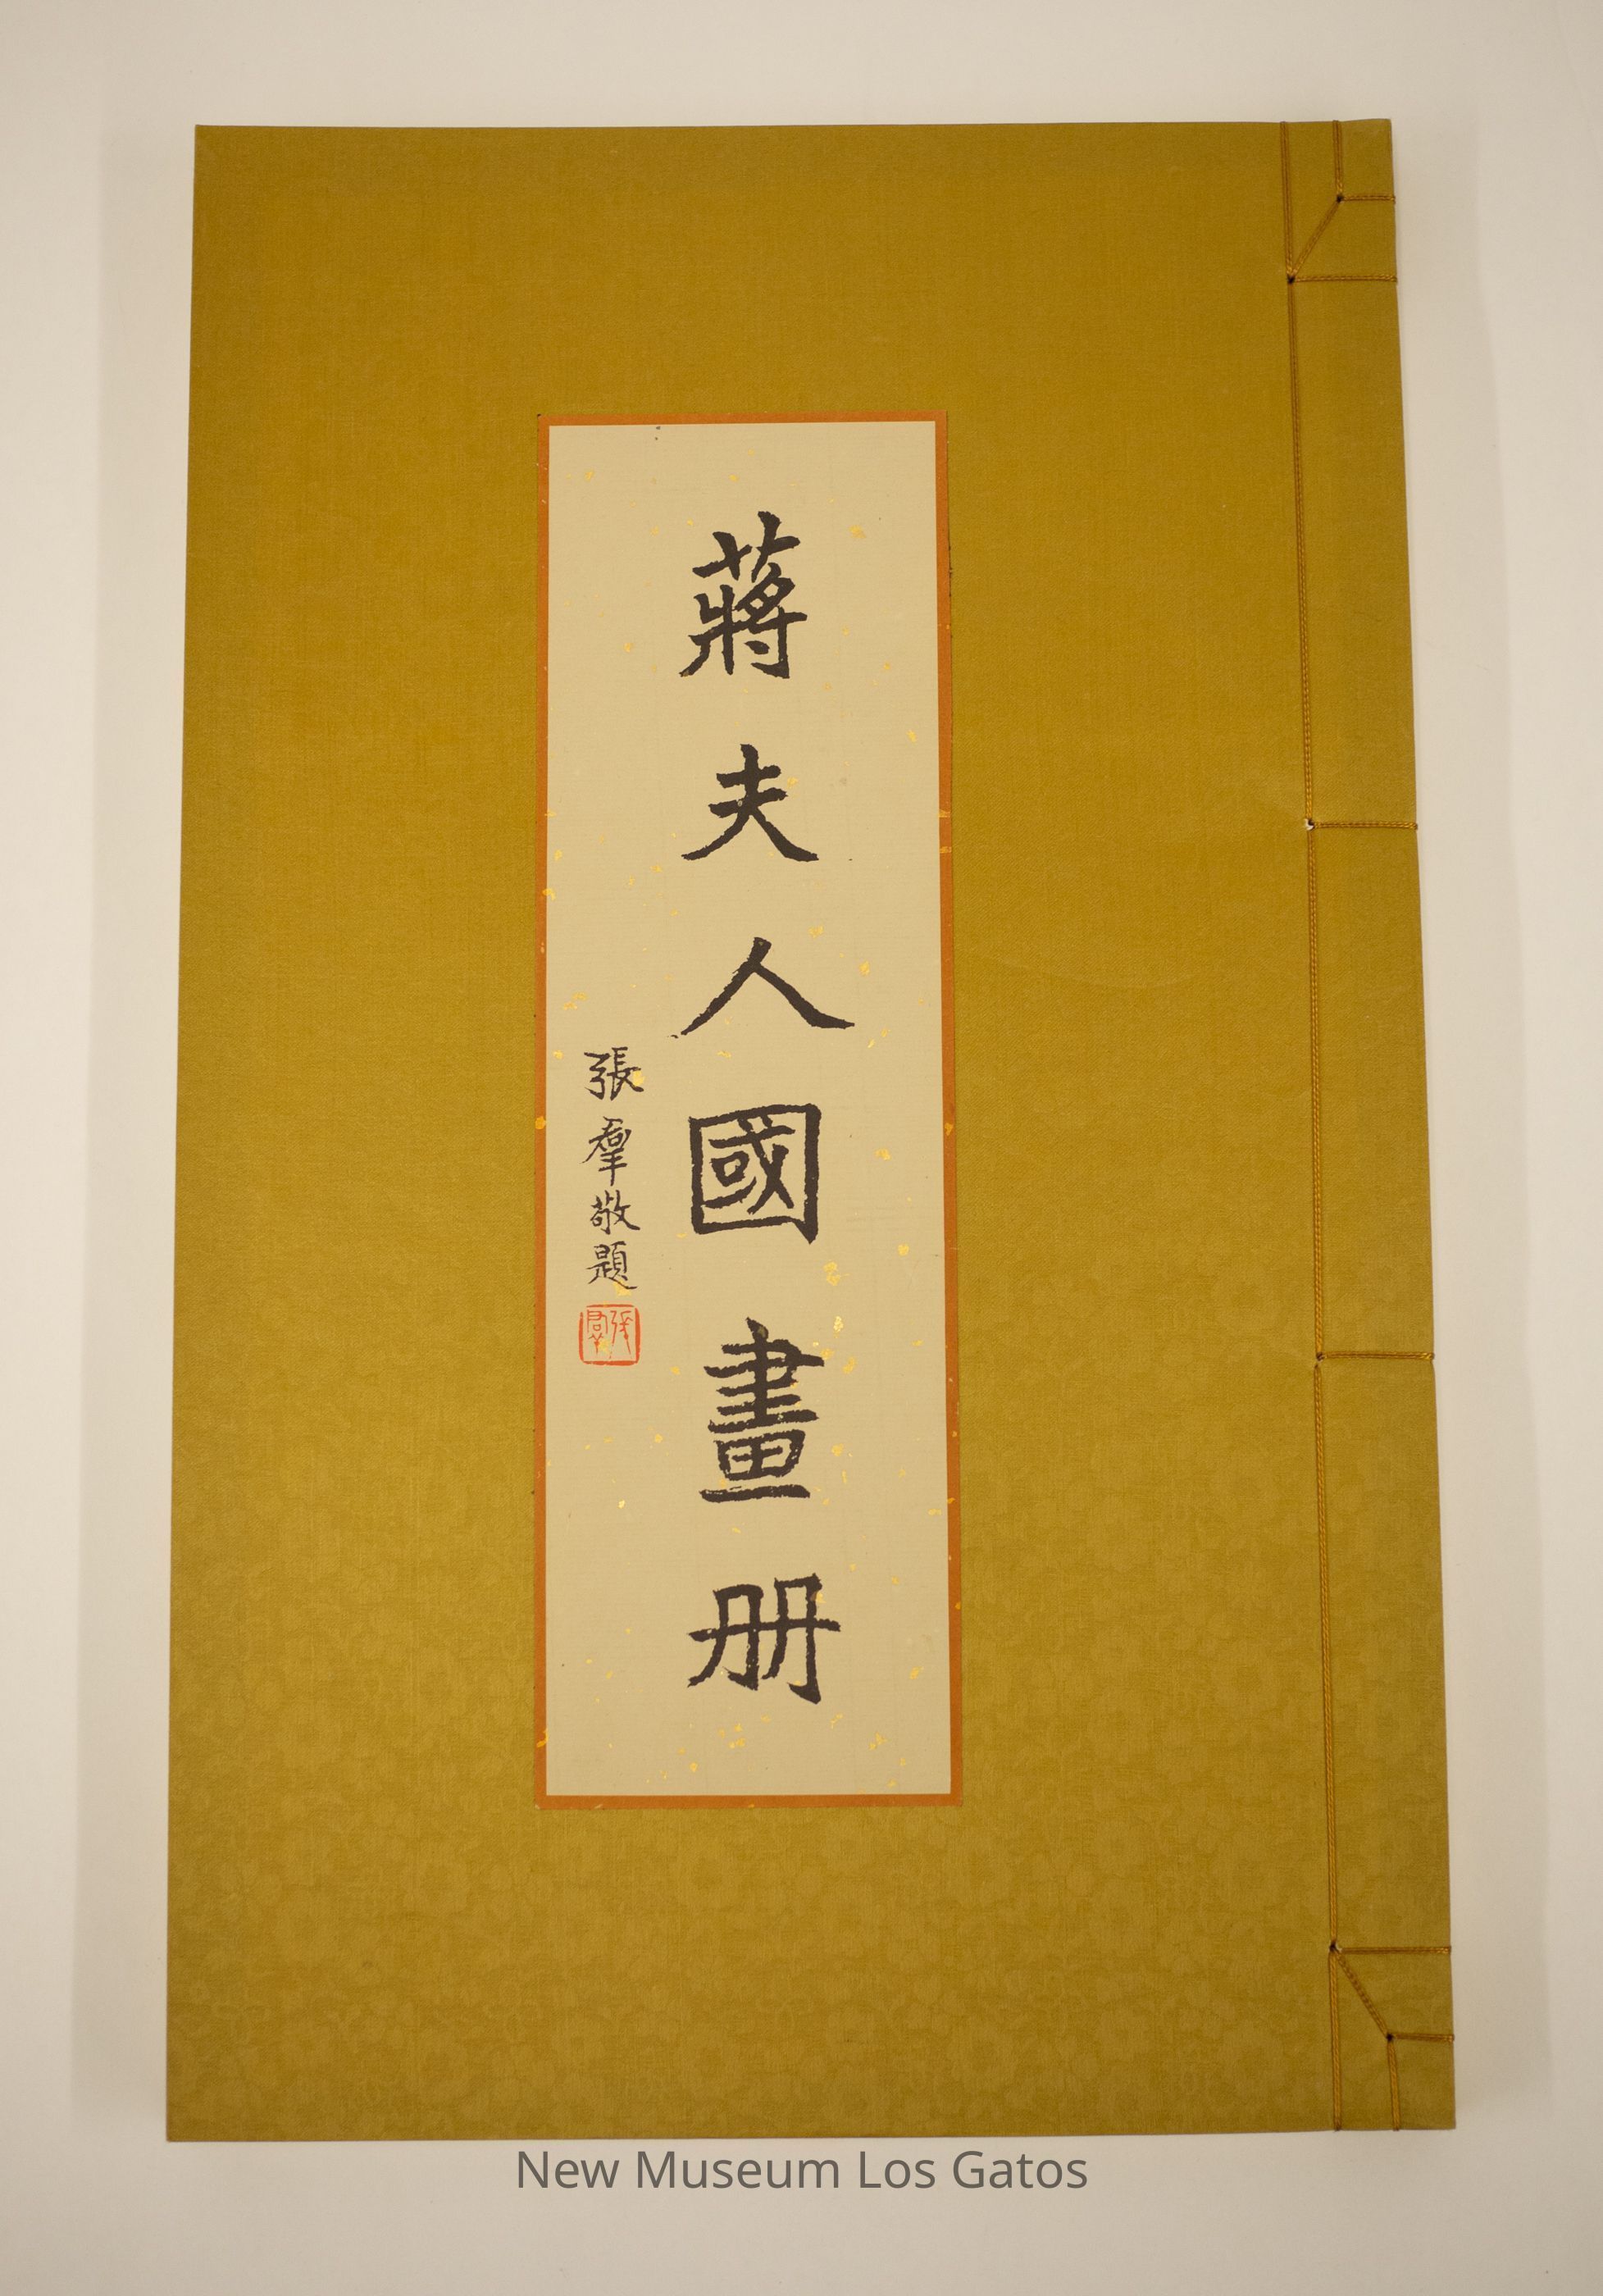 蔣夫人國畫册
張羣敬題
張羣
New Museum Los Gatos